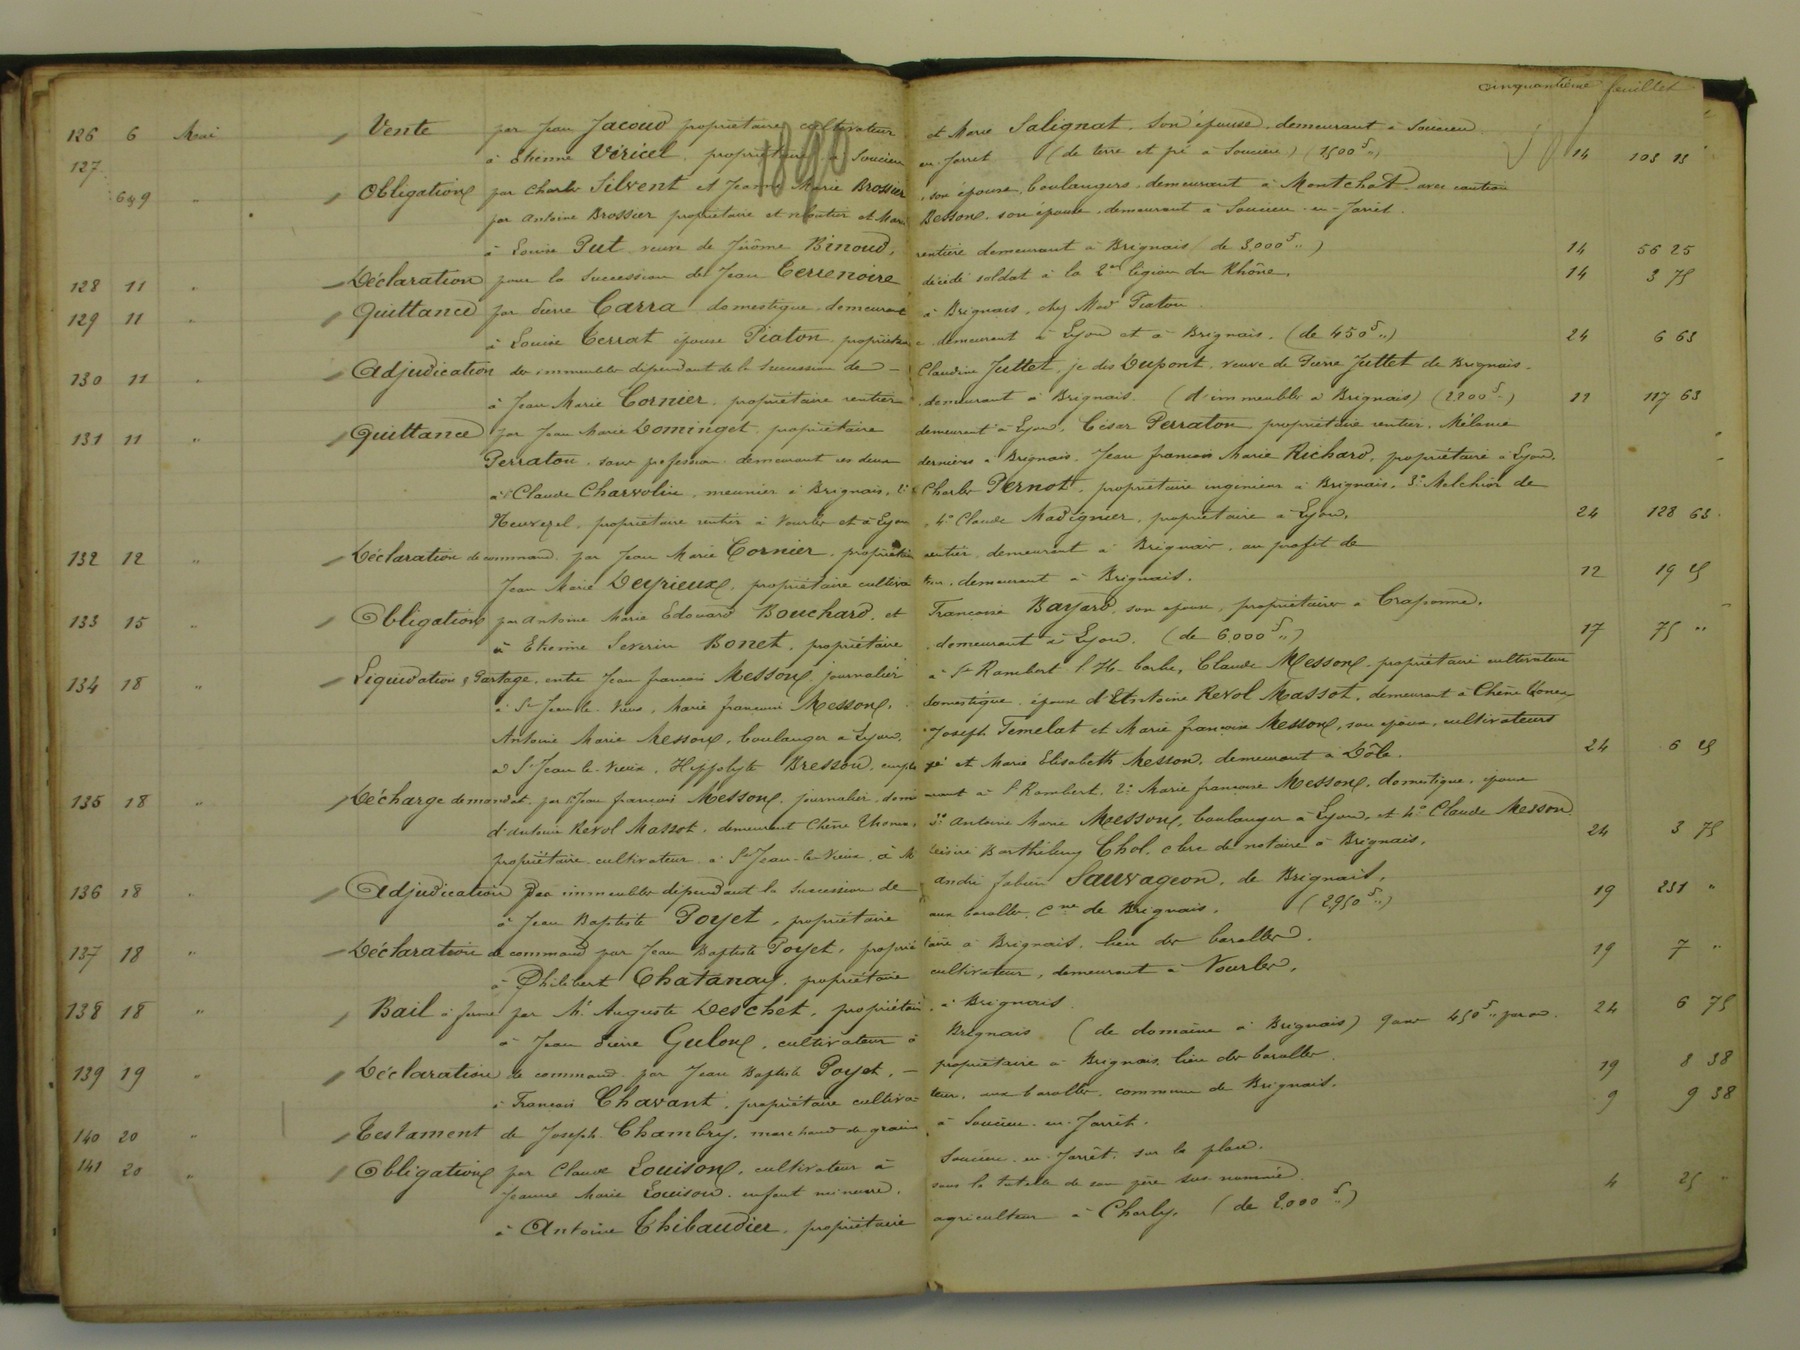 cinquantième feuillet
1890
126 6 Mai Vente par Jean Jacoud propriétaire cultivateur et Marie Salignat, son épouse, demeurant à Soucieu
127 à Etienne Véricel, propriétaire à Soucieu en Jarret (de terre et pré à Soucieu) (1500 f ,,) 14 103 13
6 & 9 " Obligation par Charles Silvent et Jeanne Marie Brossier, son épouse, boulangers, demeurant à Montchat avec caution
par Antoine Brossier propriétaire et rentier et Marie Besson, son épouse, demeurant à Soucieu-en-Jarret.
à Louise Put veuve de Jérôme Binoud, rentière demeurant à Brignais (de 3,000 f ,,) 14 56 25
128 11 " Déclaration pour la Succession de Jean Terrenoire décédé soldat à la 2me légion du Rhône. 14 3 75
129 11 " Quittance par Pierre Carra domestique, demeurant à Brignais, chez Mad Piaton
à Louise Terrat épouse Piaton, propriétaire demeurant à Lyon et à Brignais. (de 450 f ,,) 24 6 63
130 11 " Adjudication des immeubles dépendant de la Succession de - Claudine Juttet, je dis Dupont, veuve de Pierre Juttet de Brignais.
à Jean Marie Cornier, propriétaire rentier demeurant à Brignais. (d'immeubles à Brignais) (2200 f ,,) 12 117 63
131 11 " Quittance par Jean Marie Dominget, propriétaire demeurant à Lyon, César Perraton propriétaire rentier, Mélanie
Perraton, sans profession, demeurant ces deux derniers à Brignais, Jean françois Marie Richard, propriétaire à Lyon.
à 1° Claude Charvolin, meunier à Brignais, 2° Charles Pernot, propriétaire ingénieur à Brignais, 3° Melchior de
Neuvezel, propriétaire rentier à Vourles et à Lyon, 4° Claude Madignier, propriétaire à Lyon, 24 128 63
132 12 " Déclaration de command par Jean Marie Cornier, propriétaire rentier, demeurant à Brignais, au profit de
Jean Marie Deyrieux, propriétaire cultivateur, demeurant à Brignais. 12 19 25
133 15 " Obligation par Antoine Marie Edouard Bouchard, et Françoise Bayard, son épouse, propriétaires à Craponne,
à Etienne Severin Bonet, propriétaire demeurant à Lyon. (de 6.000 f ,,) 17 75 "
134 18 " Liquidation & Partage, entre Jean françois Messon, journalier à St Rambert l'Ile-barbe, Claude Messon, propriétaire cultivateur
à St Jean le Vieux, Marie françoise Messon, domestique, épouse d'Antoine Revol Massot, demeurant à Chêne
Antoine Marie Messon, boulanger à Lyon, Joseph Temelat et Marie françoise Messon, son épouse, cultivateurs
à St Jean-le-Vieux, Hippolyte Bresson, employé et Marie Elisabeth Messon, demeurant à Dôle. 24 6 25
135 18 " Décharge de mandat par 1° Jean françois Messon, journalier, demeurant à St Rambert, 2° Marie françoise Messon, domestique, épouse
d'Antoine Revol Massot, demeurant Chêne Thonex, 3° Antoine Marie Messon, boulanger à Lyon, et 4° Claude Messon
propriétaire-cultivateur à St Jean-le-Vieux, à M Barthélemy Chol, clerc de notaire à Brignais. 24 3 75
136 18 " Adjudication Des immeubles dépendant la Succession de andré fabien Sauvageon, de Brignais,
à Jean Baptiste Poyet, propriétaire aux barolles, cne de Brignais. (2,950 f ,,) 19 231 "
137 18 " Déclaration de command par Jean Baptiste Poyet, propriétaire à Brignais, lieu des barolles.
à Philibert Chatanay, propriétaire cultivateur, demeurant à Vourles, 19 7 "
138 18 " Bail à ferme par Mr Auguste Deschet, propriétaire, à Brignais.
à Jean Pierre Gulon, cultivateur à Brignais (de domaine à Brignais) 9 ans 450 f ,, par an. 24 6 75
139 19 " Déclaration de command par Jean Baptiste Poyet, - propriétaire à Brignais, lieu des barolles.
à François Chavant, propriétaire cultivateur, aux barolles, commune de Brignais. 19 8 38
140 20 " Testament de Joseph Chambry, marchand de grains à Soucieu-en-Jarrêt. 9 9 38
141 20 " Obligation par Claude Louison, cultivateur à Soucieu-en-Jarrêt, sur le plan.
Jeanne Marie Louison, enfant mineure, sous la tutelle de son père sus-nommé.
à Antoine Thibaudier, propriétaire agriculteur à Charly, (de 2,000 f ,,) 4 25 "